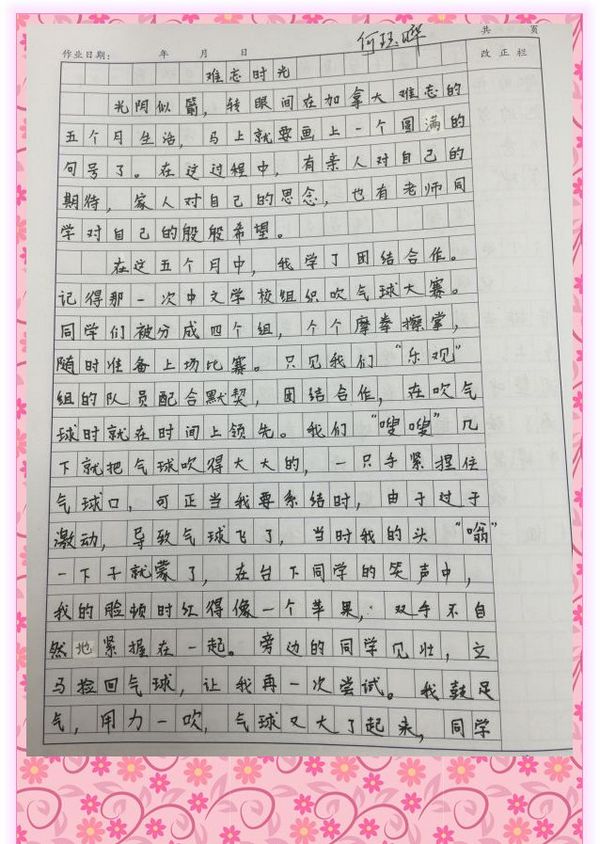 何珏晔
共 页
作业日期： 年 月 日
改正栏
难忘时光
光阴似箭，转眼间在加拿大难忘的
五个月生活，马上就要画上一个圆满的
句号了。在这过程中，有亲人对自己的
期待，家人对自己的思念，也有老师同
学对自己的殷殷希望。
在这五个月中，我学了团结合作。
记得那一次中文学校组织吹气球大赛。
同学们被分成四个组，个个摩拳擦掌，
随时准备上场比赛。只见我们“乐观”
组的队员配合默契，团结合作，在吹气
球时就在时间上领先。我们“嗖嗖”几
下就把气球吹得大大的，一只手紧捏住
气球口，可正当我要系结时，由于过于
激动，导致气球飞了，当时我的头“嗡”
一下子就蒙了，在台下同学的笑声中，
我的脸顿时红得像一个苹果，双手不自
然地紧握在一起。旁边的同学见壮，立
马捡回气球，让我再一次尝试。我鼓足
气，用力一吹，气球又大了起来，同学